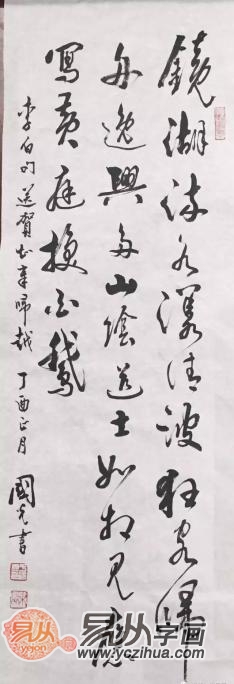 鏡湖流水漾清波狂客歸
舟逸興多山陰道士如相見應
寫黃庭換白鵝
李白句送賀知章歸越 丁酉正月 國光書
易从
易从字画
www.yczihua.com